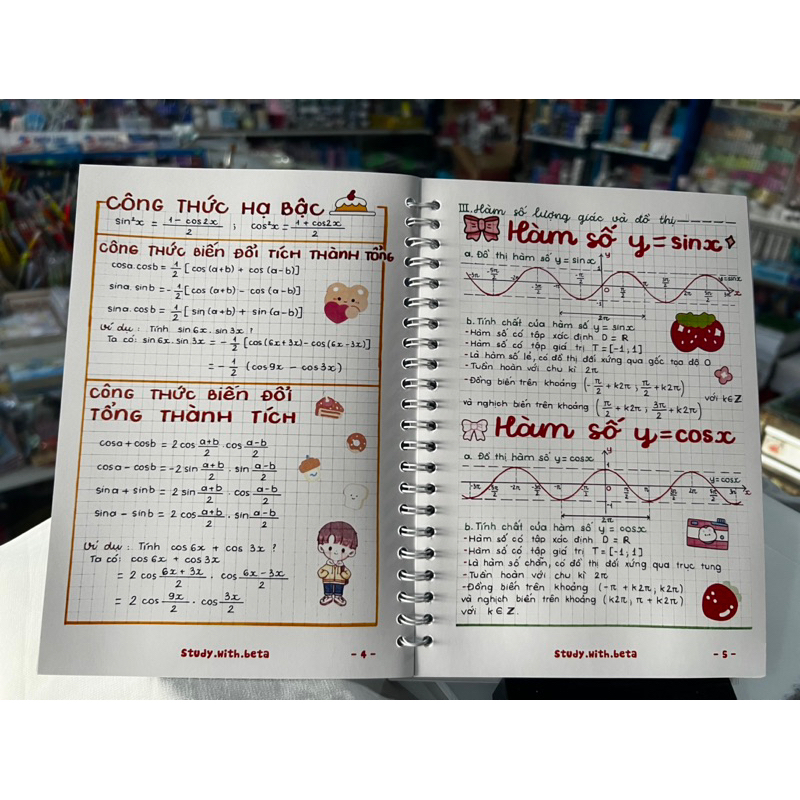 CÔNG THỨC HẠ BẬC
sin²x = (1 - cos2x)/2 ; cos²x = (1 + cos2x)/2
CÔNG THỨC BIẾN ĐỔI TÍCH THÀNH TỔNG
cosa.cosb = 1/2 [cos(a+b) + cos(a-b)]
sina.sinb = -1/2 [cos(a+b) - cos(a-b)]
sina.cosb = 1/2 [sin(a+b) + sin(a-b)]
Ví dụ: Tính sin6x.sin3x ?
Ta có: sin6x.sin3x = -1/2 [cos(6x+3x) - cos(6x-3x)]
= -1/2 (cos9x - cos3x)
CÔNG THỨC BIẾN ĐỔI
TỔNG THÀNH TÍCH
cosa + cosb = 2cos (a+b)/2 . cos (a-b)/2
cosa - cosb = -2sin (a+b)/2 . sin (a-b)/2
sina + sinb = 2sin (a+b)/2 . cos (a-b)/2
sina - sinb = 2cos (a+b)/2 . sin (a-b)/2
Ví dụ: Tính cos6x + cos3x ?
Ta có: cos6x + cos3x
= 2cos (6x+3x)/2 . cos (6x-3x)/2
= 2cos 9x/2 . cos 3x/2
Study.with.beta
- 4 -
III. Hàm số lượng giác và đồ thị
Hàm số y = sinx
a. Đồ thị hàm số y = sinx
y
y=sinx
x
2π
b. Tính chất của hàm số y = sinx
- Hàm số có tập xác định D = R
- Hàm số có tập giá trị T = [-1;1]
- Là hàm số lẻ, có đồ thị đối xứng qua gốc tọa độ O
- Tuần hoàn với chu kì 2π
- Đồng biến trên khoảng (-π/2 + k2π; π/2 + k2π)
với k∈Z
và nghịch biến trên khoảng (π/2 + k2π; 3π/2 + k2π)
Hàm số y = cosx
a. Đồ thị hàm số y = cosx
y
y=cosx
x
2π
b. Tính chất của hàm số y = cosx
- Hàm số có tập xác định D = R
- Hàm số có tập giá trị T = [-1;1]
- Là hàm số chẩn, có đồ thị đối xứng qua trục tung
- Tuần hoàn với chu kì 2π
- Đồng biến trên khoảng (-π + k2π; k2π)
và nghịch biến trên khoảng (k2π; π + k2π)
với k ∈ Z
Study.with.beta
- 5 -